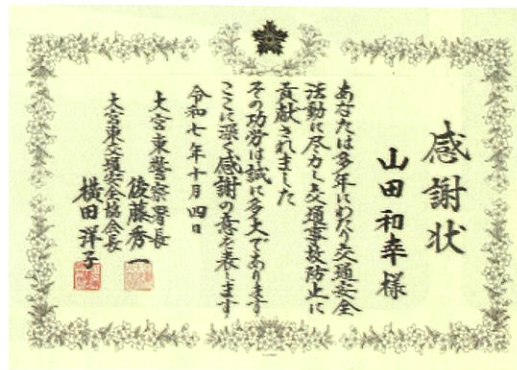 感謝状
山田和幸様
あなたは多年にわたり交通安全
活動に尽力し交通事故防止に
貢献されました
その功労は誠に多大であります
ここに深く感謝の意を表します
令和七年十月四日
大宮東警察署長
後藤秀一
大宮東交通安全協会長
横田洋子